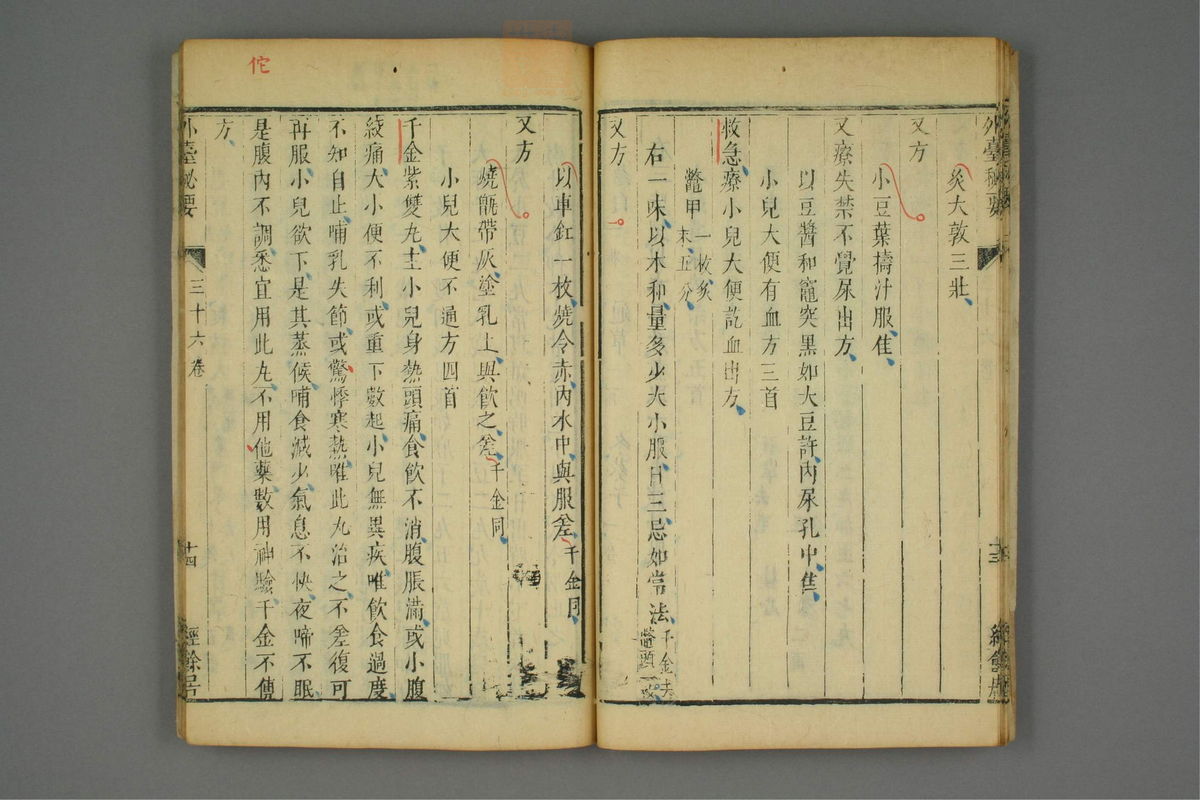 灸大敦三壯
又方
小豆葉擣汁服隹
又療失禁不覺尿出方
以豆醬和竈突黑如大豆許內尿孔中隹
小兒大便有血方三首
救急療小兒大便訖血出方
鼈甲一枚炙末五分
右一味以木和量多少大小服日三忌如常法千金夫鼈頭
又方
以車釭一枚燒令赤內水中與服差千金同
又方
燒甑帶灰塗乳上與飲之差千金同
小兒大便不通方四首
千金紫雙丸主小兒身熱頭痛食飲不消腹脹滿或小腹
絞痛大小便不利或重下數起小兒無異疾唯飲食過度
不知自止哺乳失節或驚悸寒熱唯此丸治之不差復可
再服小兒欲下是其蒸候哺食減少氣息不快夜啼不眠
是腹內不調悉宜用此丸不用他藥數用神驗千金不傳
方
外臺秘要
三十六卷
十三
外臺秘要
三十六卷
十四
經餘居
佗